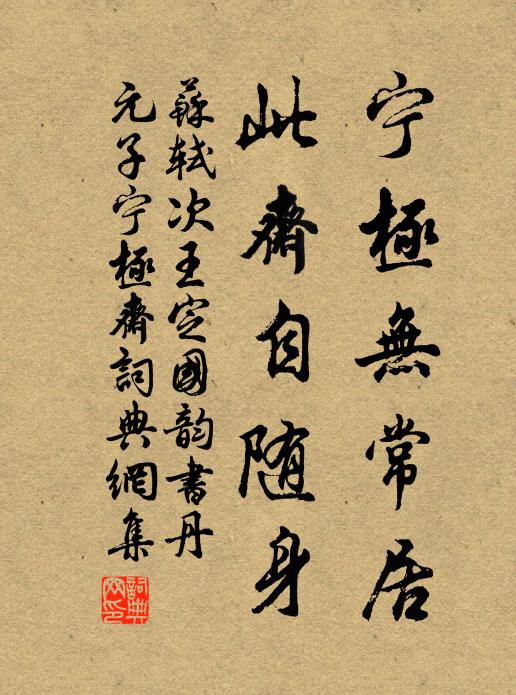 宁極無常居
此齋自随身
蘇軾次王定國韵書丹
元子宁極齋詞典網集
詞典网印